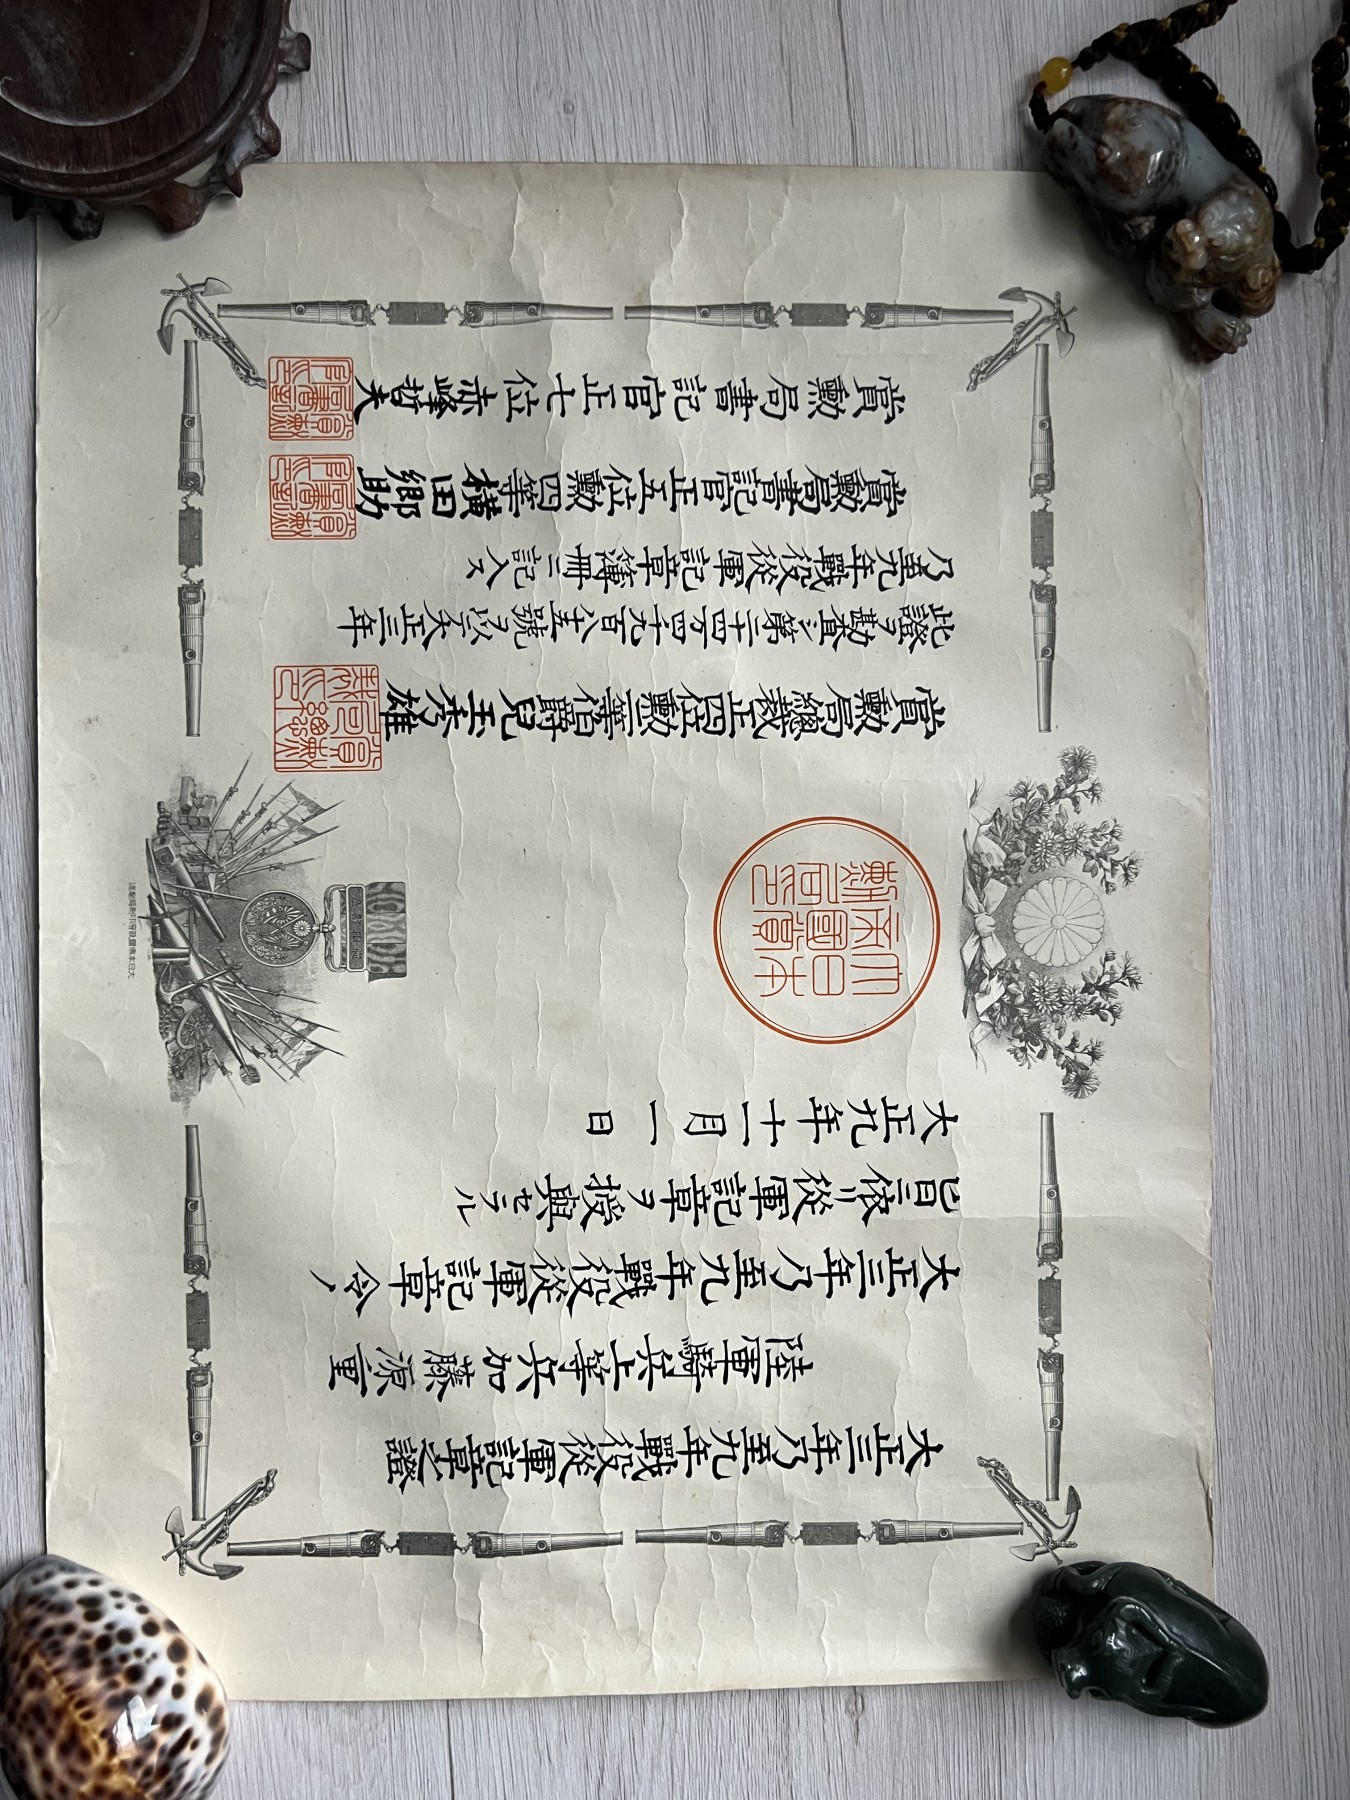 大正三年乃至九年戰役從軍記章之證
陸軍騎兵上等兵加藤源重
大正三年乃至九年戰役從軍記章令ノ
旨ニ依リ從軍記章ヲ授與セラル
大正九年十一月一日
大日本帝國賞勳局印
賞勳局總裁正四位勳二等伯爵兒玉秀雄
賞勳局總裁之印
此證ヲ勘査シ第三十四万四千九百八十五號ヲ以テ大正三年
乃至九年戰役從軍記章簿冊ニ記入ス
賞勳局書記官正五位勳四等横田郷助
賞勳局書記官正七位赤峰哲夫
大日本帝國政府印刷局製造